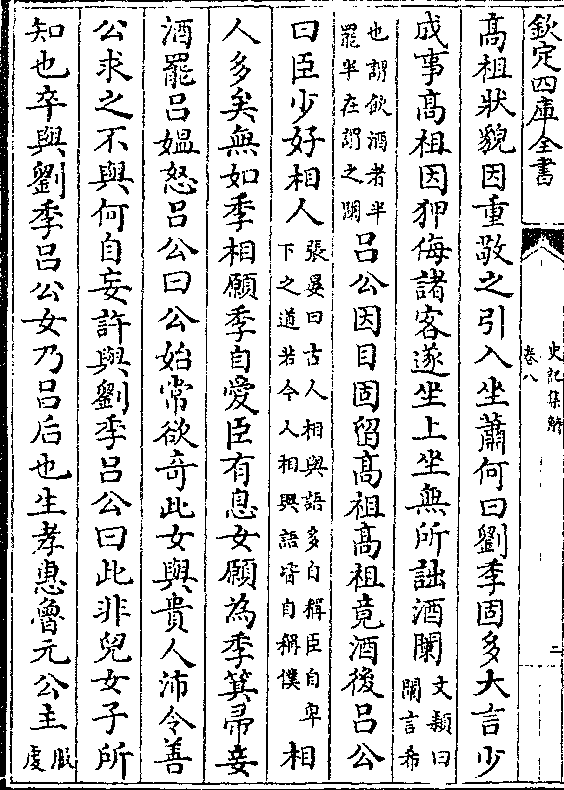 欽定四庫全書
史記集解
卷八
二
高祖狀貌因重敬之引入坐蕭何曰劉季固多大言少
成事高祖因狎侮諸客遂坐上坐無所詘酒闌
文穎曰
闌言希
也謂飲酒者半
罷半在謂之闌
呂公因目固留高祖高祖竟酒後呂公
曰臣少好相人
張晏曰古人相與語多自稱臣自卑
下之道若今人相與語皆自稱僕
相
人多矣無如季相願季自愛臣有息女願為季箕帚妾
酒罷呂媼怒呂公曰公始常欲奇此女與貴人沛令善
公求之不與何自妄許與劉季呂公曰此非兒女子所
知也卒與劉季呂公女乃呂后也生孝惠魯元公主
服
虔